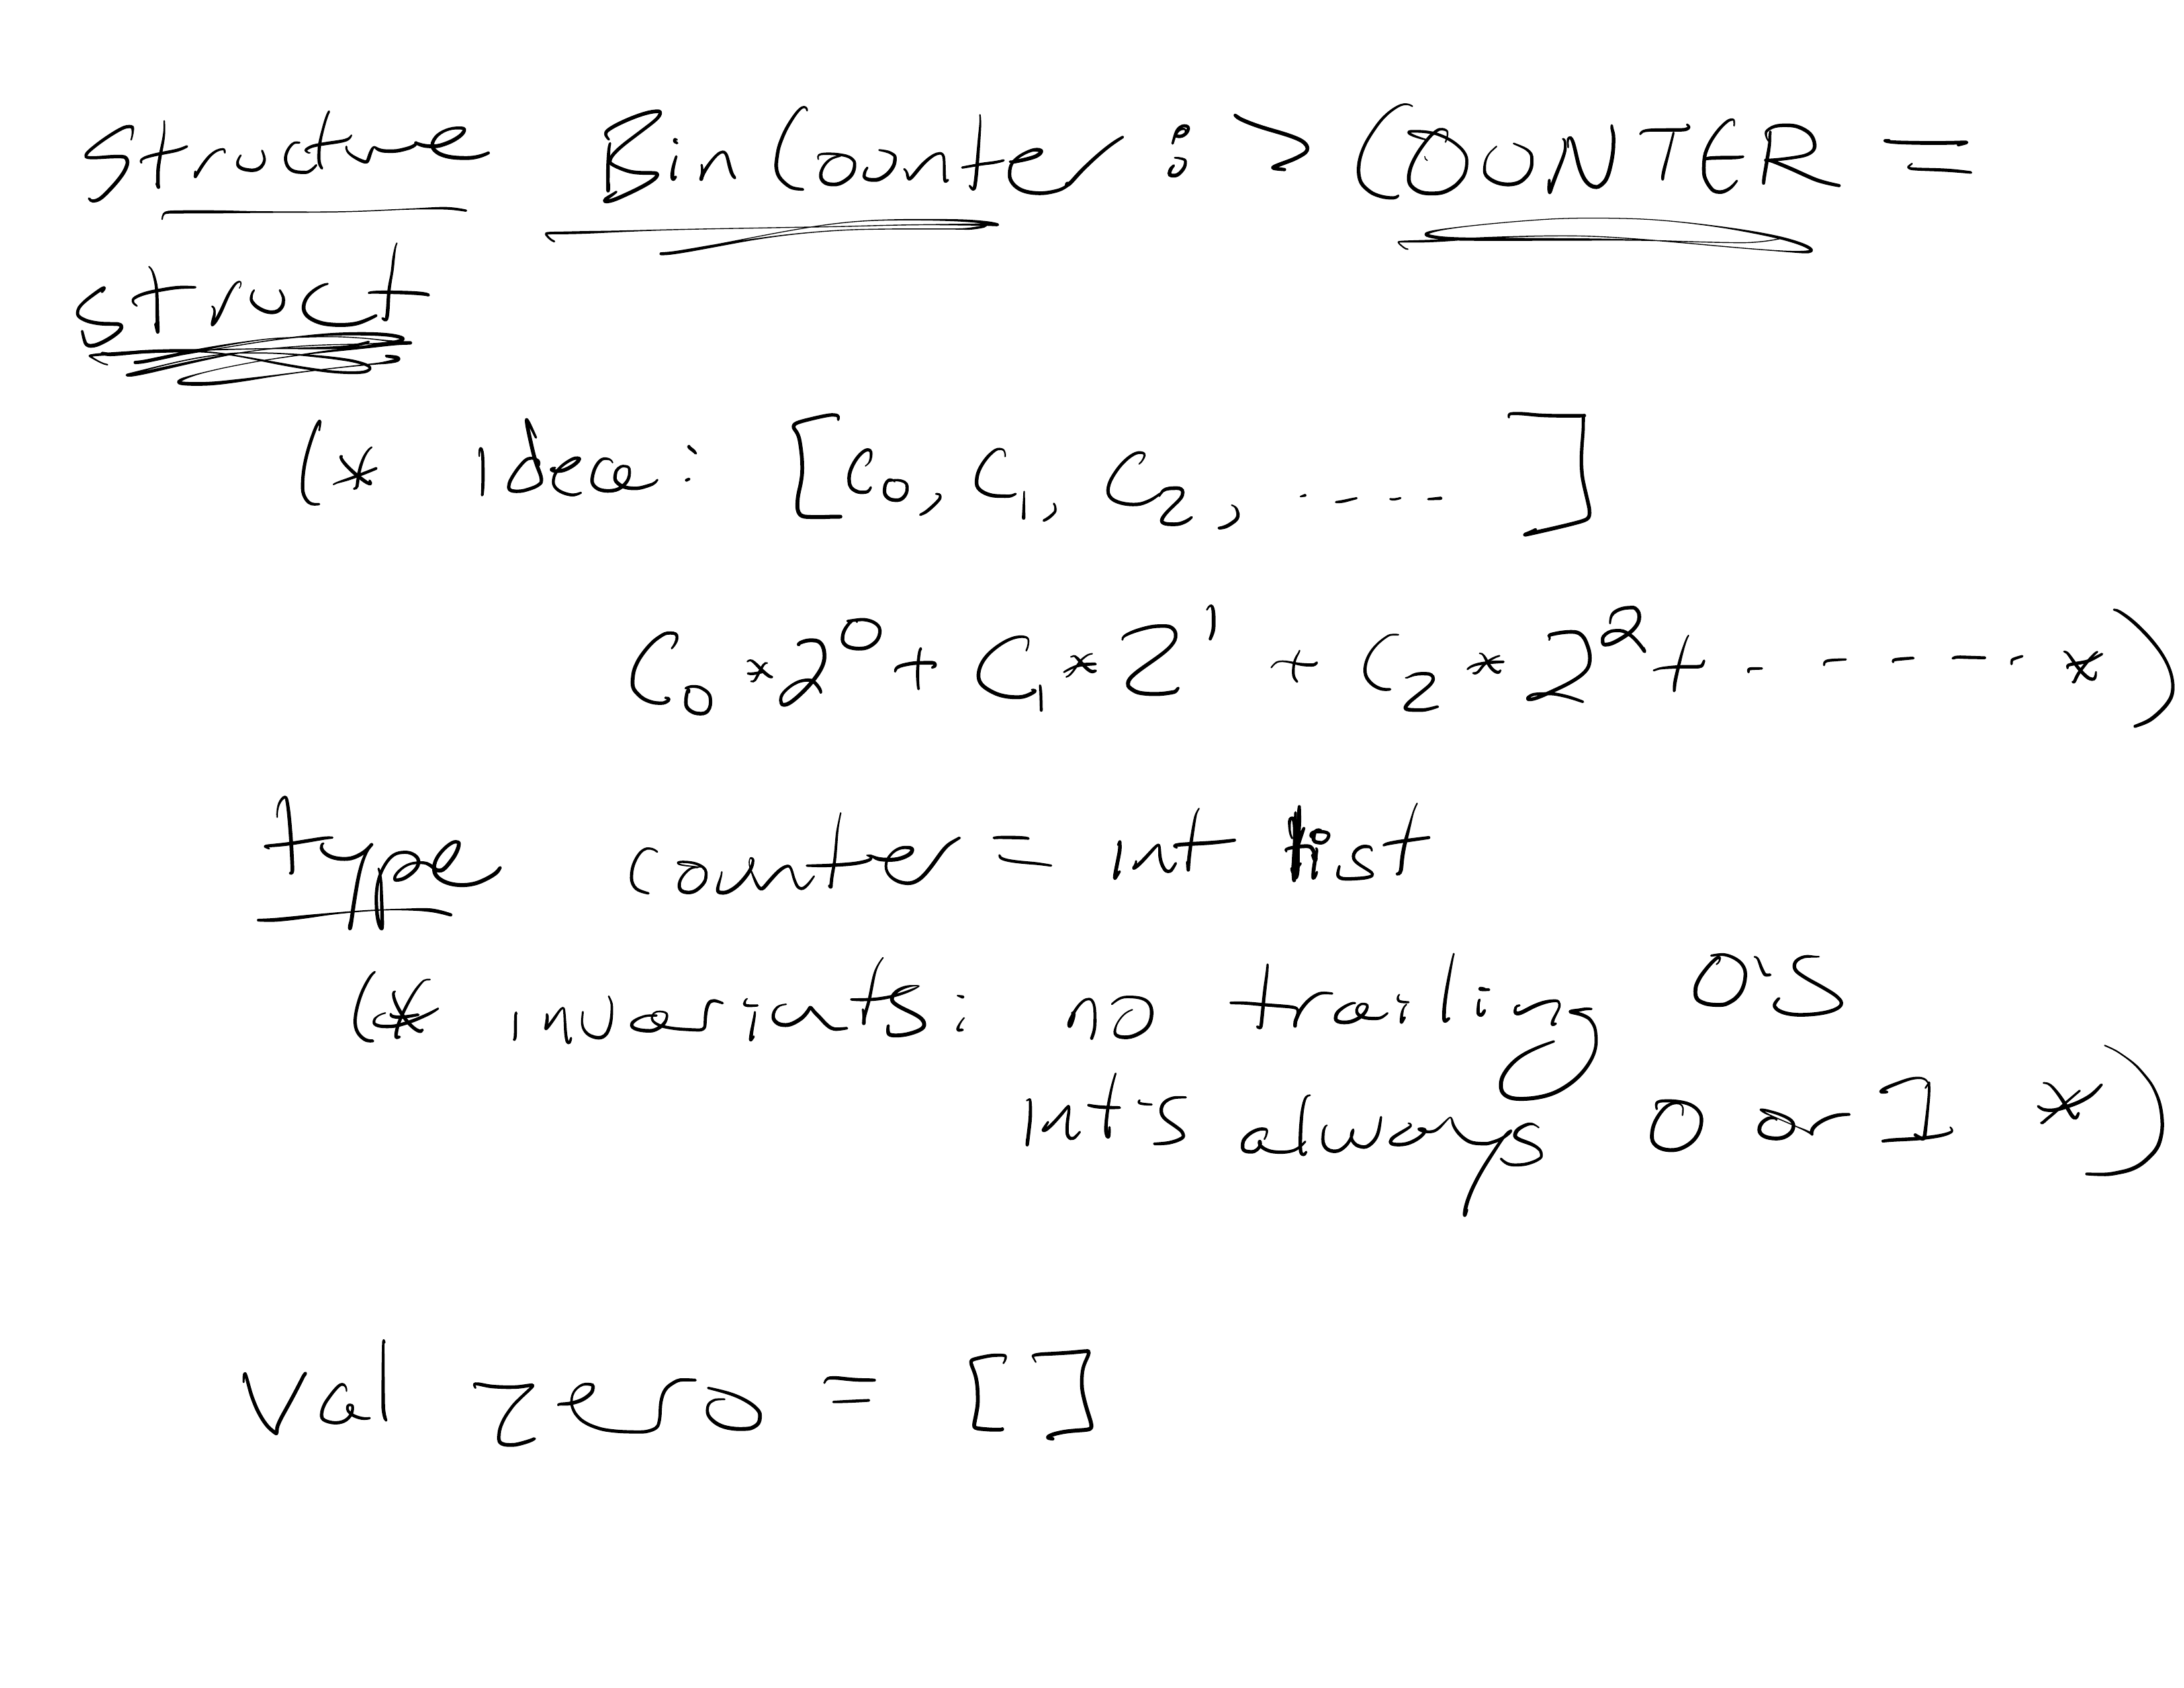 structure BinCounter :> COUNTER =
struct
(* Idea: [c₀, c₁, c₂, ..... ]
c₀ * 2⁰ + c₁ * 2¹ + c₂ * 2² + - - - - - *)
type counter = int list
(* invariants: no trailing 0's
int's always 0 or 1 *)
val zero = []